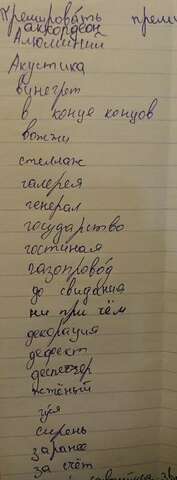 Премировать преми
аккордеон
Алюминий
Акустика
винегрет
в конце концов
вожжи
стеллаж
галерея
генерал
государство
гостиная
газопрово́д
до свидания
ни при чём
декорация
дефект
диспетчер
жжёный
зря
сирень
заранее
за счёт